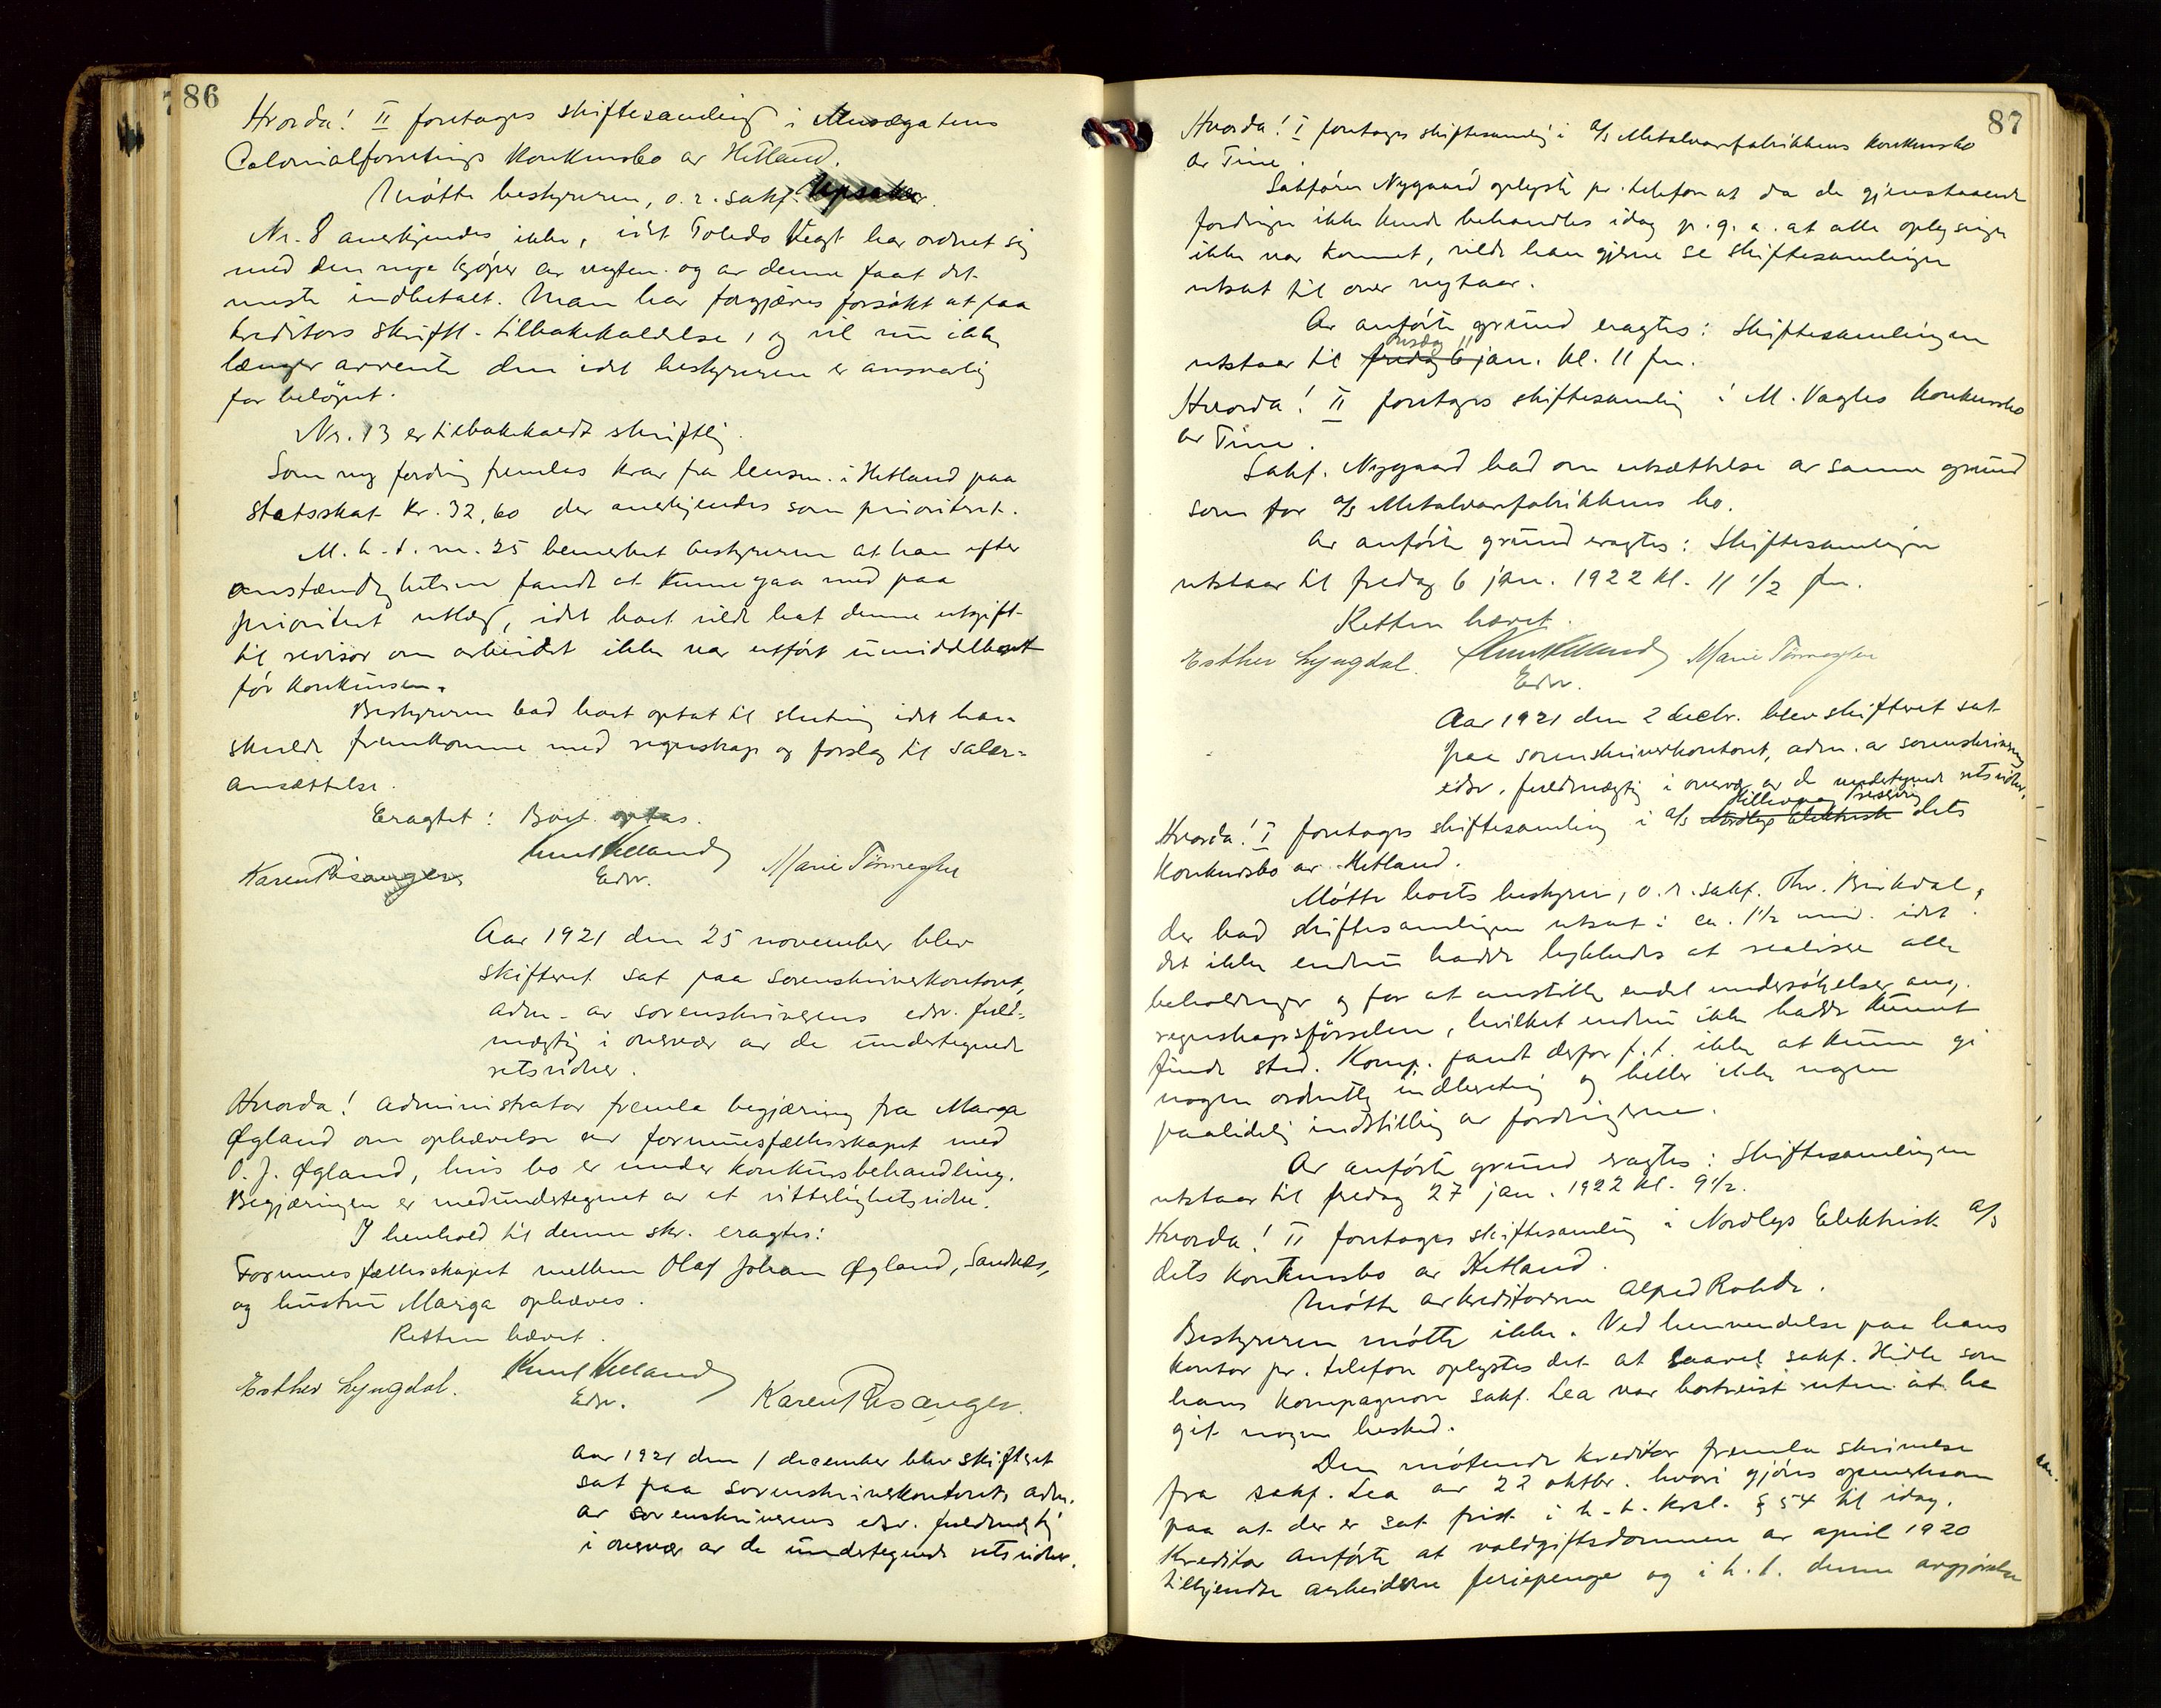 86
Hvorda! II foretages skiftesamling i Musægatens
Colonialforretnings konkursbo av Hetland.
Møtte bestyreren, o.r.sakf. Upsaker.
Nr. 8 anerkjendes ikke, idet Toledo Vegt har ordnet sig
med den nye kjøper av vegten og av denne faat det
meste indbetalt. Man har forgjæves forsøkt at faa
kreditors skriftl. tilbakekaldelse, og vil nu ikke
længer avvente den idet bestyreren er ansvarlig
for beløpet.
Nr. 13 er tilbakekaldt skriftlig.
Som ny fordring fremlas krav fra lensm. i Hetland paa
statsskat kr. 32,60 der anerkjendes som prioritert.
M.h.t. nr. 25 bemerket bestyreren at han efter
omstændigheterne fandt at kunne gaa med paa
prioritert utlæg, idet boet vilde hat denne utgift
til revisor om arbeidet ikke var utført umiddelbart
før konkursen.
Bestyreren bad boet optat til slutning idet han
skulde fremkomme med regnskap og forslag til salær-
ansættelse.
Eragtet: Boet optas.
Karen Risanger Knut Kelland Marie Tønnesen
Edsv.
Aar 1921 den 25 november blev
skifteret sat paa sorenskriverkontoret,
adm. av sorenskriverens edsv. fuld-
mægtig i overvær av de undertegnede
retsvidner.
Hvorda! Administrator fremla begjæring fra Marga
Øgland om ophævelse av formuesfællesskapet med
O. J. Øgland, hvis bo er under konkursbehandling.
Begjæringen er medundertegnet av et vitterlighetsvidne.
I henhold til denne skr. eragtes:
Formuesfællesskapet mellem Olaf Johan Øgland, Sandnes,
og hustru Marga ophæves.
Retten hævet.
Esther Lyngdal. Knut Kelland Karen Risanger.
Edsv.
Aar 1921 den 1 december blev skifteret
sat paa sorenskriverkontoret, adm.
av sorenskriverens edsv. fuldmægtig
i overvær av de undertegnede retsvidner.
87
Hvorda! I foretages skiftesamling i a/s Metalvarefabrikkens konkursbo
av Time.
Sakfører Nygaard oplyste pr. telefon at da de gjenstaaende
fordringer ikke kunde behandles idag p.g.a. at alle oplysninger
ikke var kommet, vilde han gjerne se skiftesamlingen
utsat til over nytaar.
Av anførte grund eragtes: Skiftesamlingen
onsdag 11
utstaar til fredag 6 jan. kl. 11 fm.
Hvorda! II foretages skiftesamling i M. Vagles konkursbo
av Time.
Sakf. Nygaard bad om utsættelse av samme grund
som for a/s Metalvarefabrikkens bo.
Av anførte grund eragtes: Skiftesamlingen
utstaar til fredag 6 jan. 1922 kl. 11 1/2 fm.
Retten hævet.
Esther Lyngdal. Knut Kelland Marie Tønnesen
Edsv.
Aar 1921 den 2 decbr. blev skifteret sat
paa sorenskriverkontoret, adm. av sorenskriverens
edsv. fuldmægtig i overvær av de undertegnede retsvidner.
Hvorda! I foretages skiftesamling i a/s Nordlys Elektrisk dets
konkursbo av Hetland.
Møtte boets bestyrer, o.r.sakf. Thv. Birkdal,
der bad skiftesamlingen utsat i ca. 1 1/2 mnd. idet
det ikke endnu hadde lykkedes at realisere alle
beholdninger og for at anstille endel undersøkelser ang.
regnskapsførselen, hvilket endnu ikke hadde kunnet
finde sted. Komp. fandt derfor f.t. ikke at kunne gi
nogen ordentlig indberetning og heller ikke nogen
paalidelig indstilling av fordringerne.
Av anførte grund eragtes: Skiftesamlingen
utstaar til fredag 27 jan. 1922 kl. 9 1/2.
Hvorda! II foretages skiftesamling i Nordlys Elektrisk a/s
dets konkursbo av Hetland.
Møtte av kreditorerne Alfred Rohde.
Bestyreren møtte ikke. Ved henvendelse paa hans
kontor pr. telefon oplystes det at saavel sakf. Hidle som
hans kompagnon sakf. Lea var bortreist uten at ha
git nogen besked.
Den møtende kreditor fremla skrivelse
fra sakf. Lea av 22 oktbr. hvori gjøres opmerksom
paa at der er sat frist i h.t. krsl. § 54 til idag.
Kreditor anførte at voldgiftsdommen av april 1920
tilkjendte arbeiderne feriepenge og i h.t. denne avgjørelse